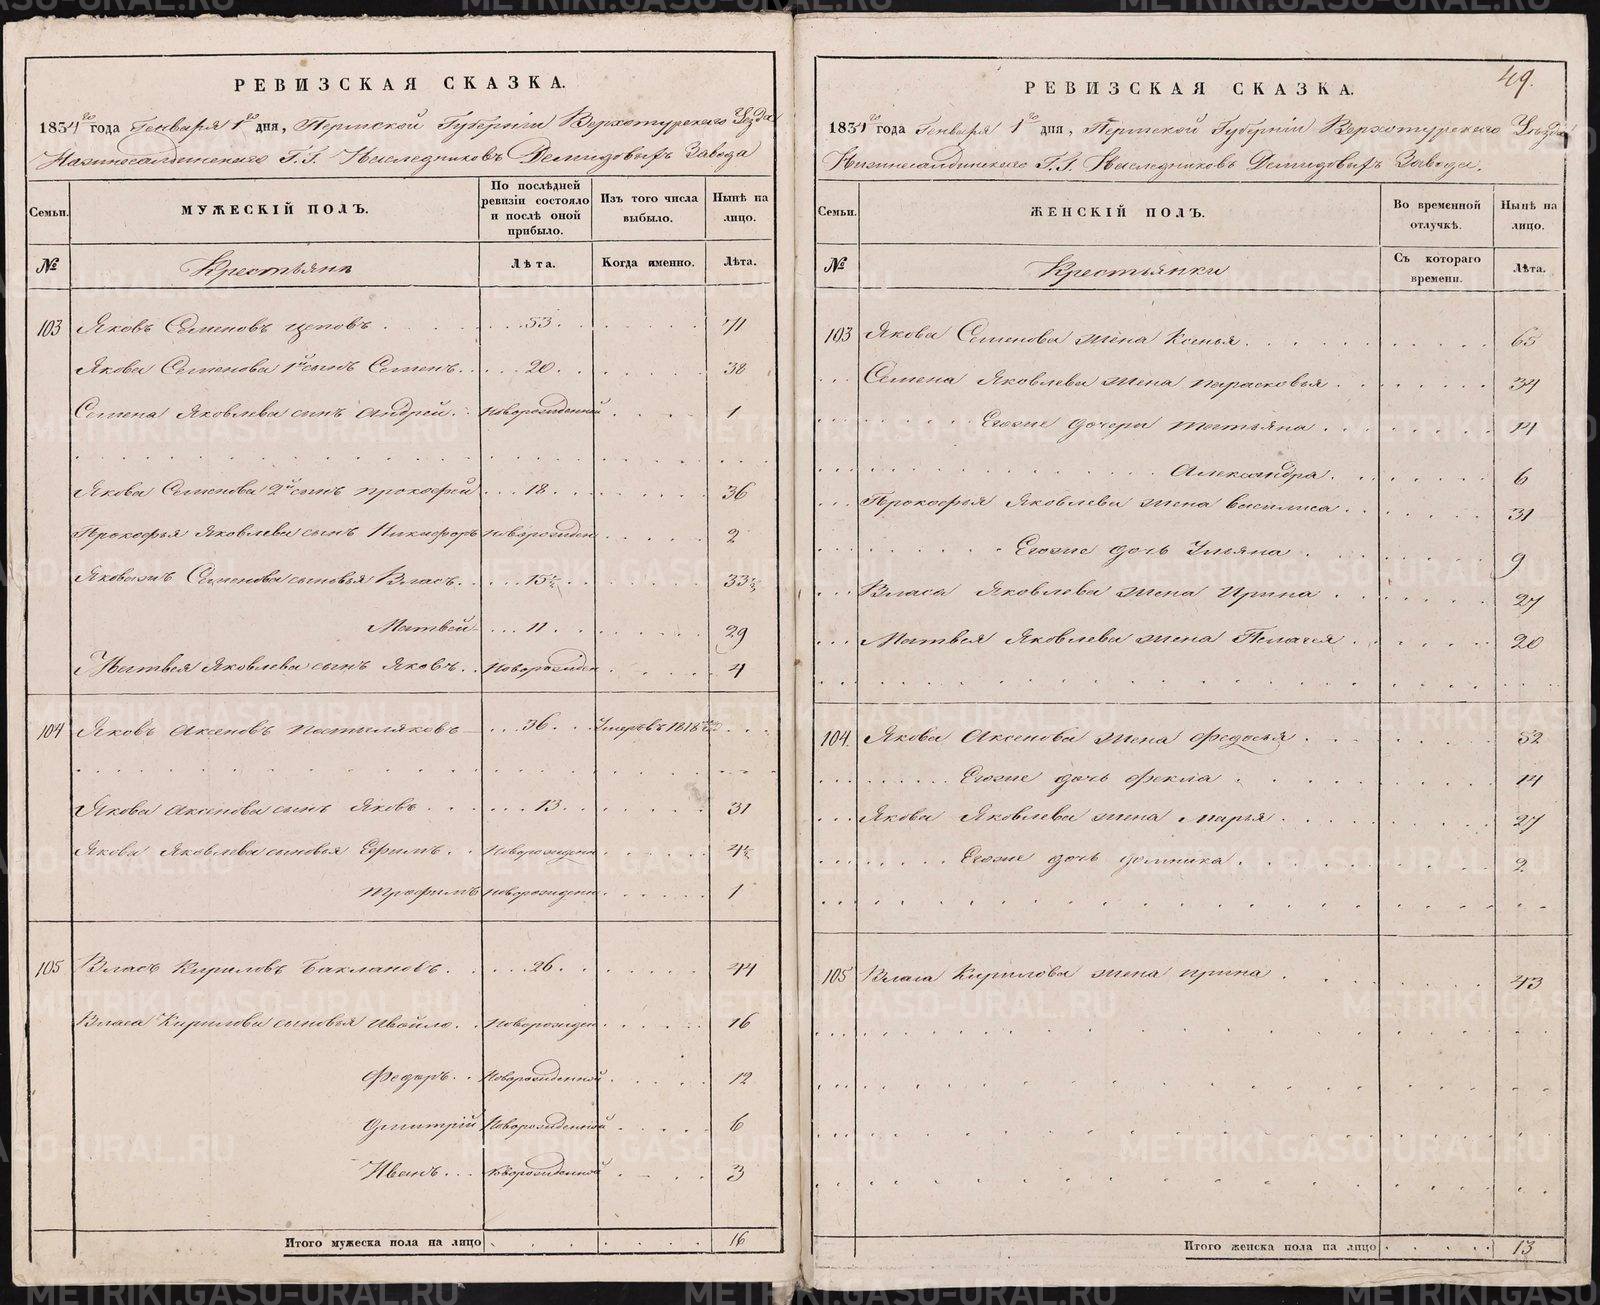 РЕВИЗСКАЯ СКАЗКА.
1834го года Генваря 1го дня, Пермской Губерніи Верхотурскаго Уѣзда
Нижнесалдинскаго Г.Г. Наслѣдниковъ Демидовыхъ Завода
Семьи.
МУЖЕСКІЙ ПОЛЪ.
По послѣдней ревизіи состояло и послѣ оной прибыло.
Изъ того числа выбыло.
Нынѣ на лицо.
№
Крестьяне
Лѣта.
Когда именно.
Лѣта.
103 Яковъ Семеновъ 53. 71
Якова Семенова 1й сынъ Семенъ 20. 38
Семена Яковлева сынъ Андрей новорожденной 1
Якова Семенова 2й сынъ Прокофей 18. 36
Прокофья Яковлева сынъ Никифоръ новорожден 2
Яковажъ Семенова сыновья Власъ 15½ 33½
Матвей 11. 29
Матвея Яковлева сынъ Яковъ новорожден 4
104 Яковъ Аксеновъ 36. Умеръ въ 1818
Якова Аксенова сынъ Яковъ 13. 31
Якова Яковлева сыновья Ефимъ новорожден 4½
Трофимъ новорожден 1
105 Власъ Кириловъ Баклановъ 26. 44
Власа Кирилова сыновья новорожден 16
Федоръ новорожденной 12
Дмитрій новорожденной 6
Иванъ новорожденной 3
Итого мужеска пола на лицо 16
49.
РЕВИЗСКАЯ СКАЗКА.
1834го года Генваря 1го дня, Пермской Губерніи Верхотурскаго Уѣзда
Нижнесалдинскаго Г.Г. Наслѣдниковъ Демидовыхъ Завода.
Семьи.
ЖЕНСКІЙ ПОЛЪ.
Во временной отлучкѣ.
Нынѣ на лицо.
№
Крестьянки
Съ котораго времени.
Лѣта.
103 Якова Семенова жена Ксенья 65
Семена Яковлева жена Парасковья 34
Егоже дочери Татьяна 14
Александра 6
Прокофья Яковлева жена Василиса 31
Егоже дочь Ульяна 9
Власа Яковлева жена Ирина 27
Матвея Яковлева жена Пелагея 20
104. Якова Аксенова жена Федосья 52
Егоже дочь Фекла 14
Якова Яковлева жена Марья 27
Егоже дочь Домника 2
105 Власа Кирилова жена Ирина 43
Итого женска пола на лицо 13
METRIKI.GASO-URAL.RU